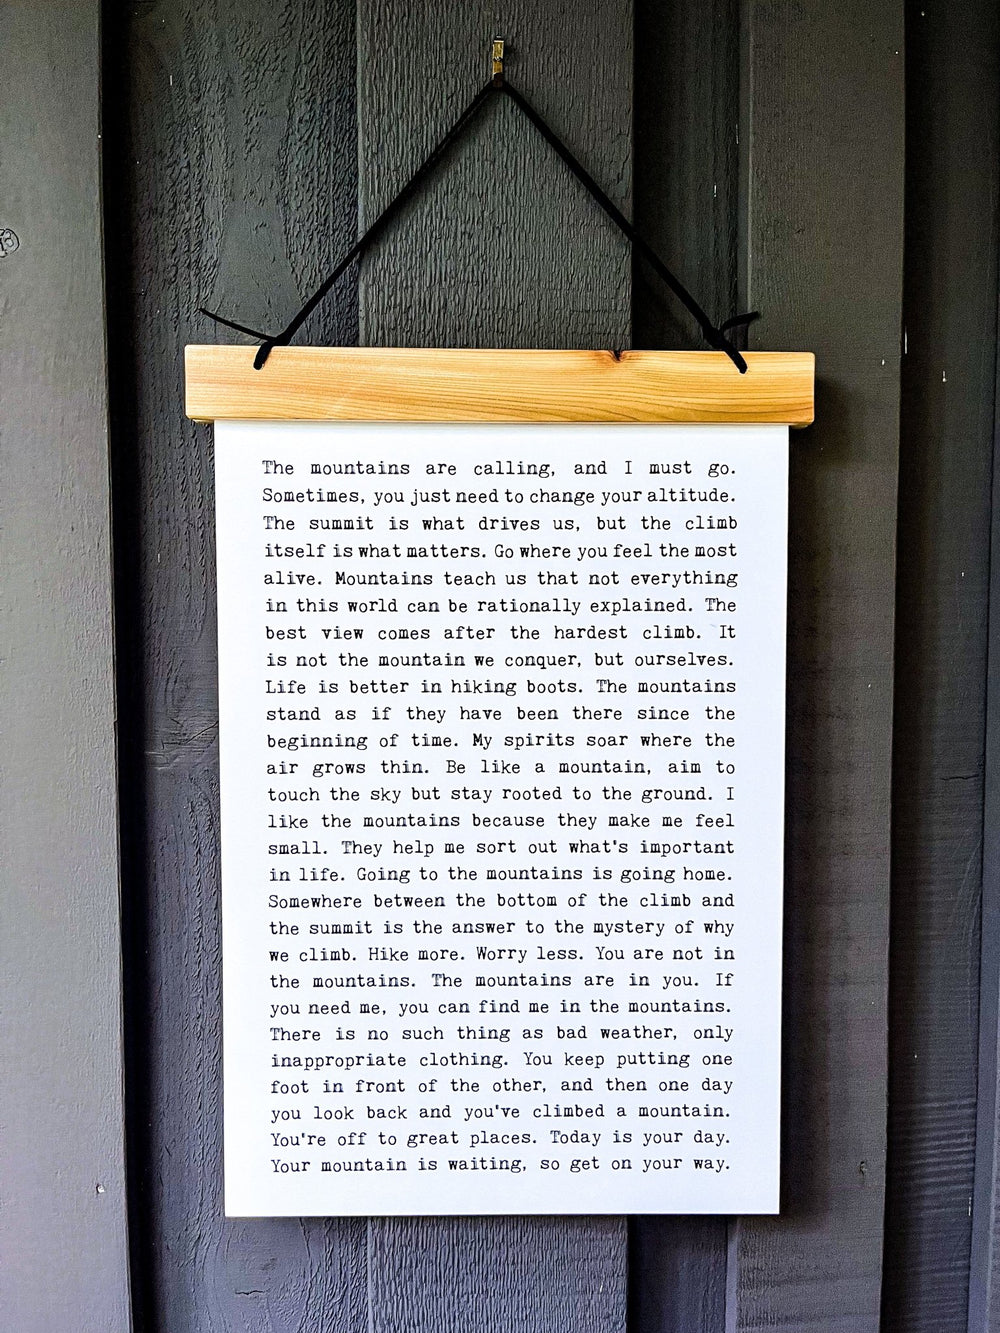 The mountains are calling, and I must go.
Sometimes, you just need to change your altitude.
The summit is what drives us, but the climb
itself is what matters. Go where you feel the most
alive. Mountains teach us that not everything
in this world can be rationally explained. The
best view comes after the hardest climb. It
is not the mountain we conquer, but ourselves.
Life is better in hiking boots. The mountains
stand as if they have been there since the
beginning of time. My spirits soar where the
air grows thin. Be like a mountain, aim to
touch the sky but stay rooted to the ground. I
like the mountains because they make me feel
small. They help me sort out what's important
in life. Going to the mountains is going home.
Somewhere between the bottom of the climb and
the summit is the answer to the mystery of why
we climb. Hike more. Worry less. You are not in
the mountains. The mountains are in you. If
you need me, you can find me in the mountains.
There is no such thing as bad weather, only
inappropriate clothing. You keep putting one
foot in front of the other, and then one day
you look back and you've climbed a mountain.
You're off to great places. Today is your day.
Your mountain is waiting, so get on your way.